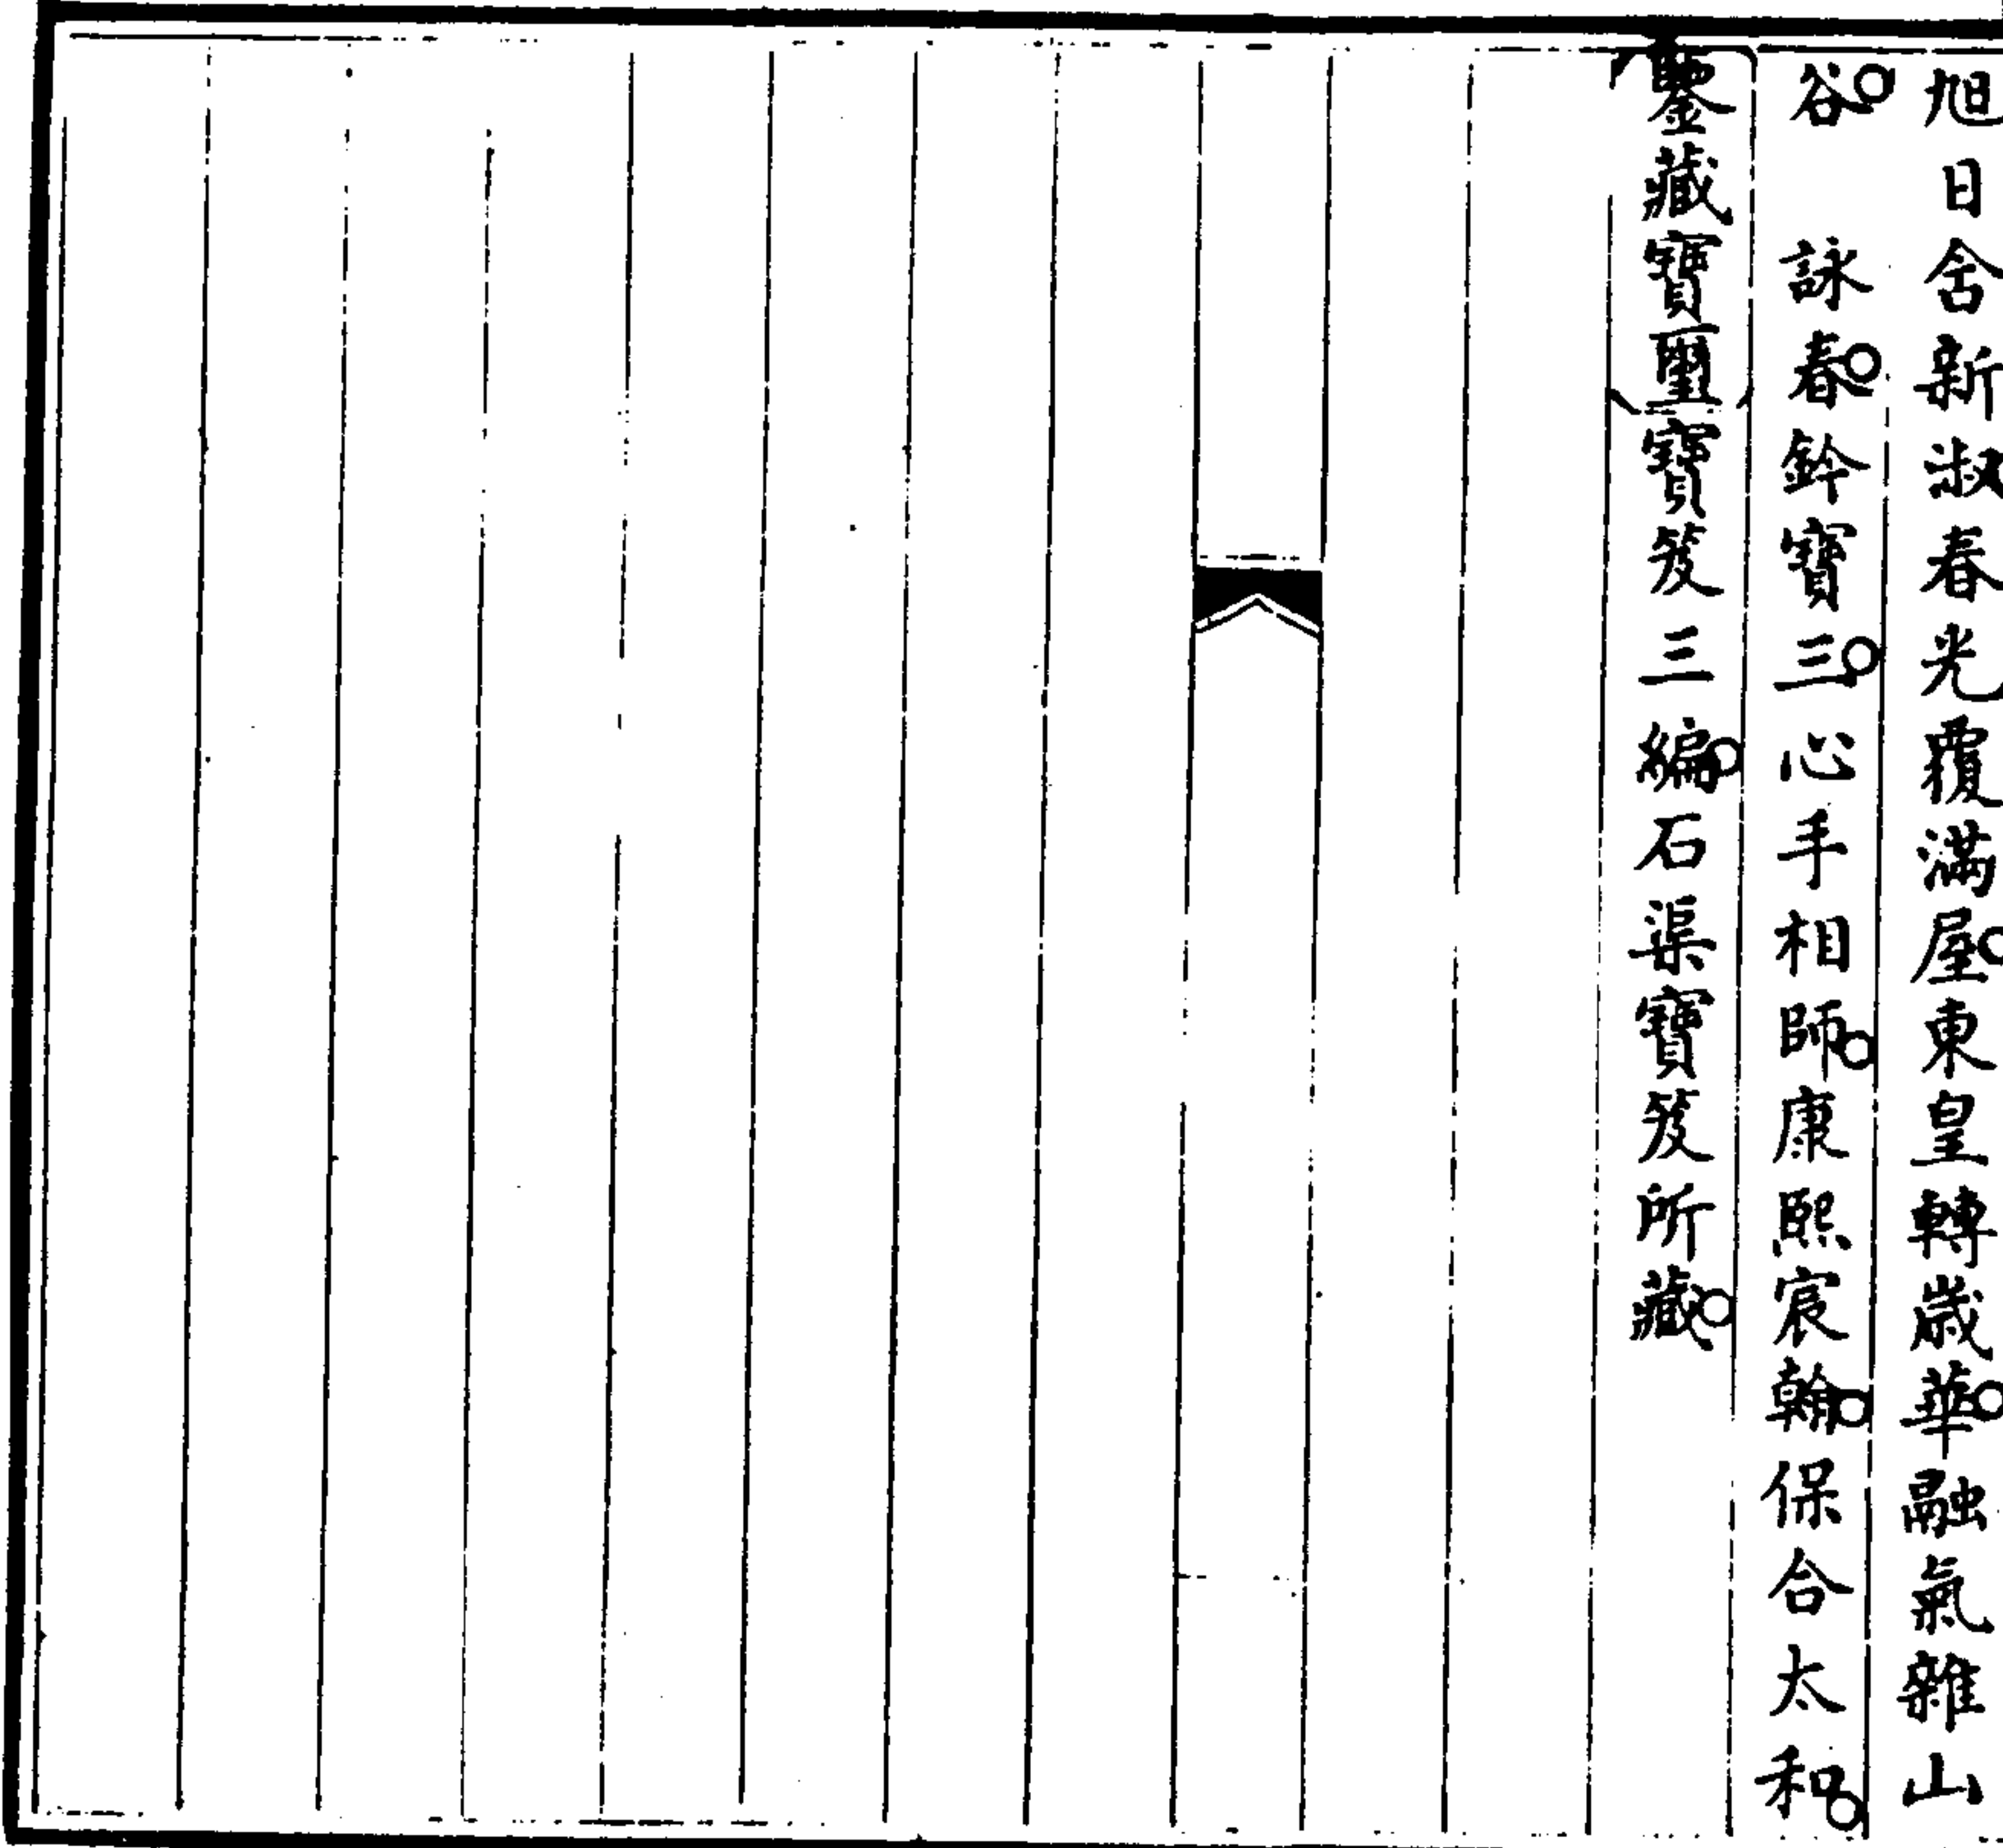 旭日舍新淑春光覆滿屋。東皇轉歲華。融氣雜山
谷。　詠春。鈐寶三。心手相師。康熙宸翰。保合太和。
鑒藏寶璽寶笈三編。石渠寶笈所藏。